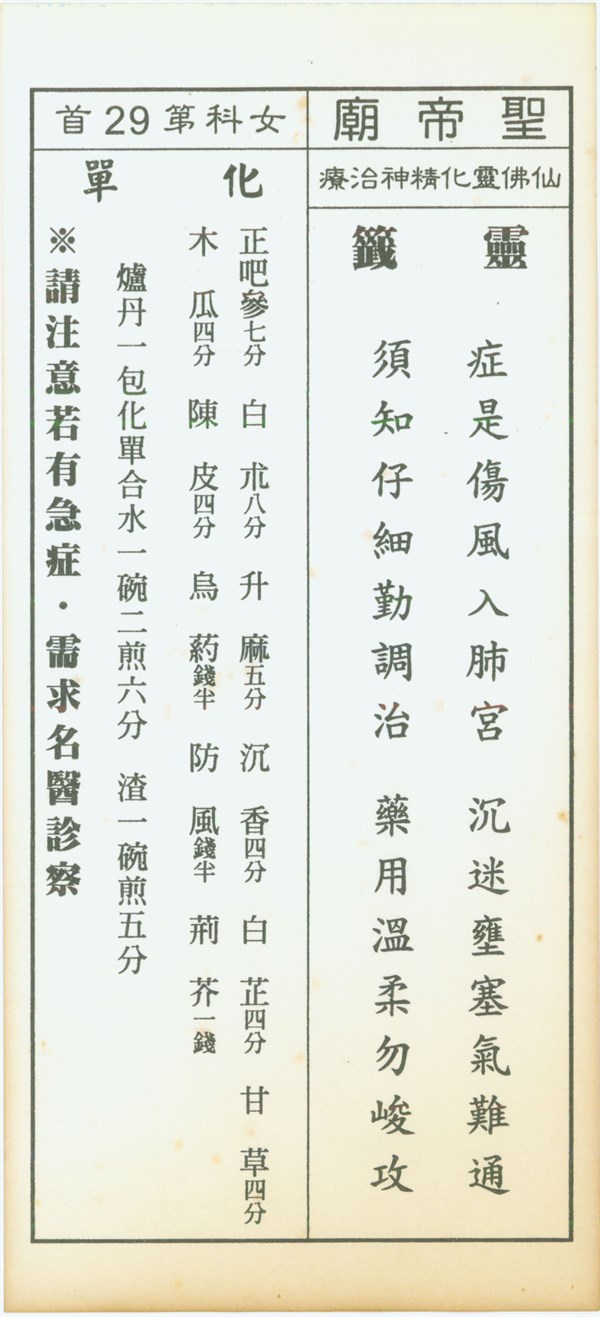 聖帝廟
仙佛靈化精神治療
靈籤
症是傷風入肺宮　沉迷壅塞氣難通
須知仔細勤調治　藥用溫柔勿峻攻
女科第29首
化單
正吧參七分　白朮八分　升麻五分　沉香四分　白芷四分　甘草四分
木瓜四分　陳皮四分　烏葯錢半　防風錢半　荊芥一錢
爐丹一包化單合水一碗二煎六分　渣一碗煎五分
※請注意若有急症・需求名醫診察